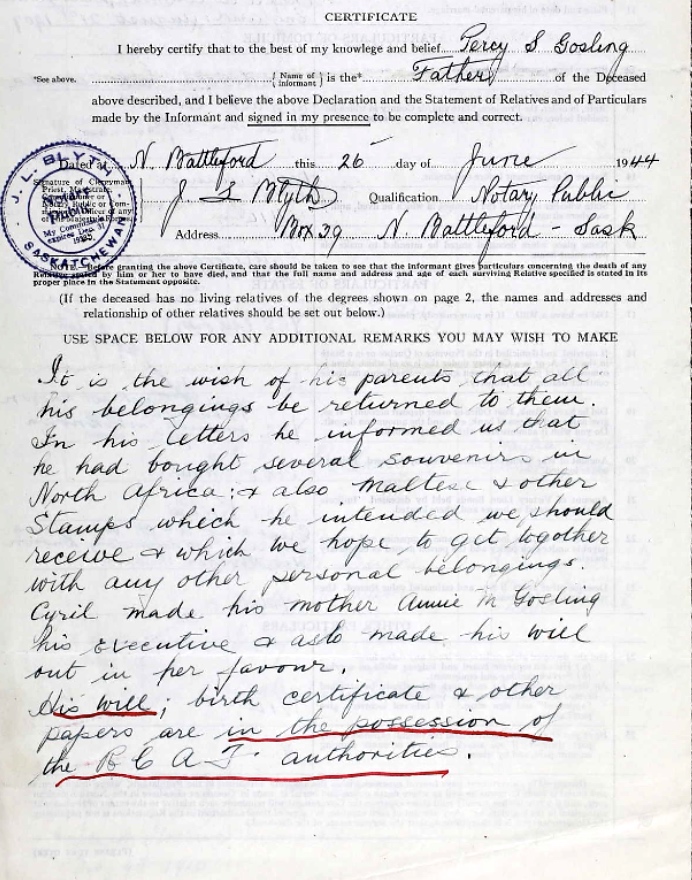 CERTIFICATE
I hereby certify that to the best of my knowlege and belief Percy S Gosling
*See above. { Name of informant } is the* Father of the Deceased
above described, and I believe the above Declaration and the Statement of Relatives and of Particulars
made by the Informant and signed in my presence to be complete and correct.
Dated at N. Battleford this 26 day of June 1944
Signature of Clergyman, Priest, Magistrate, J. L. Blyth Qualification Notary Public
Address Box 39 N. Battleford - Sask
J. L. BLYTH
My Commission expires Dec. 31
SASKATCHEWAN
NOTE.—Before granting the above Certificate, care should be taken to see that the informant gives particulars concerning the death of any
Relative stated by him or her to have died, and that the full name and address and age of each surviving Relative specified is stated in its
proper place in the Statement opposite.
(If the deceased has no living relatives of the degrees shown on page 2, the names and addresses and
relationship of other relatives should be set out below.)
USE SPACE BELOW FOR ANY ADDITIONAL REMARKS YOU MAY WISH TO MAKE
It is the wish of his parents that all
his belongings be returned to them.
In his letters he informed us that
he had bought several souvenirs in
North Africa; & also Maltese & other
Stamps which he intended we should
receive & which we hope to get together
with any other personal belongings.
Cyril made his mother Annie M Gosling
his executive & aslo made his will
out in her favour.
His will; birth certificate & other
papers are in the possession of
the R C A F authorities.